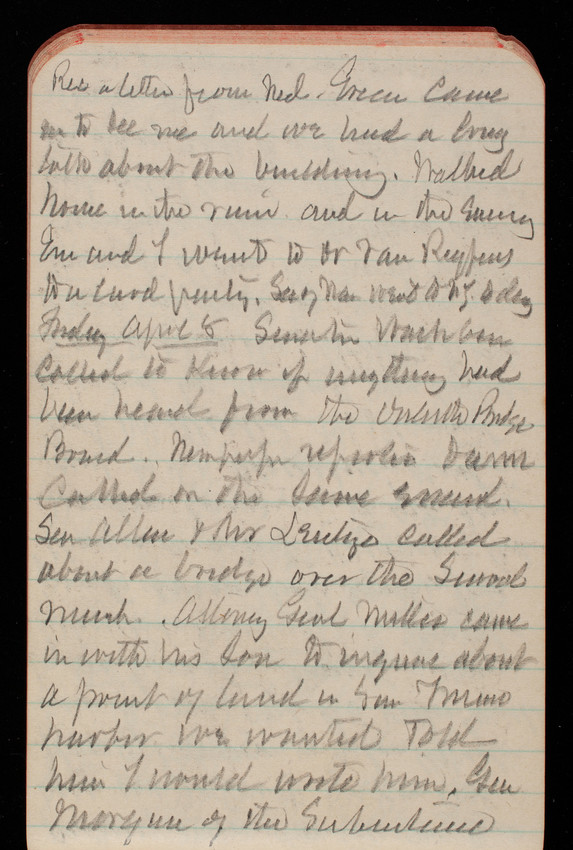 Rec a letter from Ned. Green came
in to see me and we had a long
talk about the building. Walked
home in the rain and in the evening
Em and I went to Dr Van Reypens
to a card party. Secy War went to NY today
Friday April 8 Senator Washburn
called to know if anything had
been heard from the Duluth Bridge
Board. Newspaper
called on the same errand.
Sen Allen & Mr called
about a bridge over the
. Attorney Genl Miller came
in with his Son to inquire about
a point of land in San
harbor we wanted Told
him I would write him. Gen
Morgan of the Subsistence